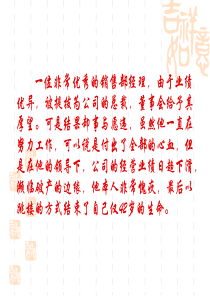 一位非常优秀的销售部经理，由于业绩
优异，被提拔为公司的总裁，董事会给予其
厚望。可是结果却事与愿违，虽然他一直在
努力工作，可以说是付出了全部的心血，但
是在他的领导下，公司的经营业绩日趋下滑，
濒临破产的边缘，他本人非常愧疚，最后以
跳楼的方式结束了自己仅42岁的生命。